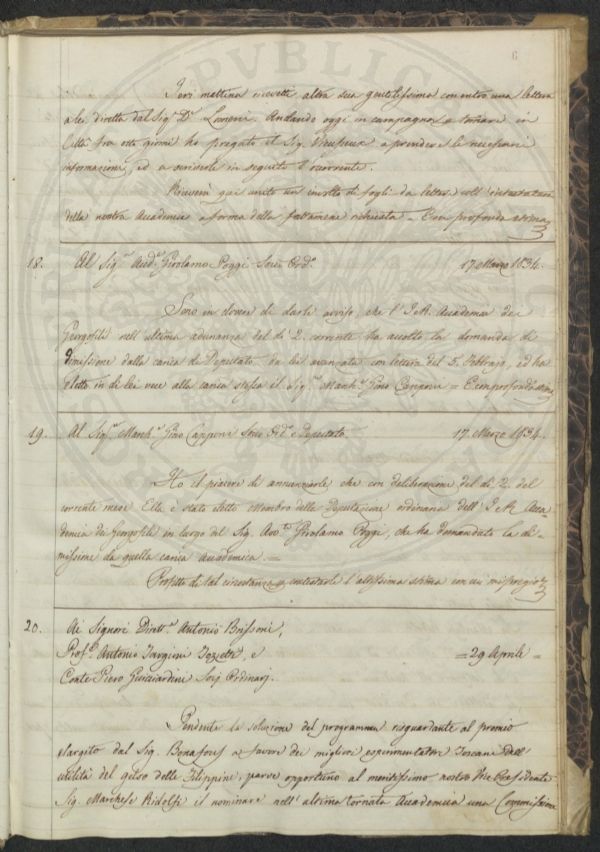 6
Jeri mattina ricevetti altra sua gentilissima con entro una lettera
a lei diretta dal Sig.r D.r Andando oggi in campagna a tornare in
Città fra otto giorni ho pregato il Sig. Vieusseux a prendere le necessarie
informazioni, ed a scriverle in seguito l'occorrente.
Riceverà qui unito un involto di fogli da lettera coll'intestatura
della nostra Accademia a forma della fattamene richiesta = Con profonda stima
18. Al Sig.r Aud.re Girolamo Poggi Socio Ord.o 17 Marzo 1834.
Sono in dovere di darle avviso, che l'I e R. Accademia dei
Georgofili nell'ultima adunanza del dì 2. corrente ha accolto la domanda di
dimissione dalla carica di Deputato, da lei avanzata con lettera del 5. Febbrajo, ed ha
eletto in di lei vece alla carica stessa il Sig.r March.e Gino Capponi = E con profond.a stima
19. Al Sig.r March.e Gino Capponi Socio Ord.o e Deputato. 17 Marzo 1834.
Ho il piacere di annunziarle che con deliberazione del dì 2. del
corrente mese Ella è stato eletto membro della Deputazione ordinaria dell'I e R Acca
demia dei Georgofili in luogo del Sig. Avv.to Girolamo Poggi, che ha domandato la di-
missione da quella carica Accademica. =
Profitto di tal circostanza p. contestarle l'altissima stima con cui mi pregio
20. Ai Signori Dirett.re Antonio Brissoni,
Prof.e Antonio Targioni Tozzetti, e =29 Aprile=
Conte Piero Guicciardini Socj Ordinarj.
Pendente la soluzione del programma risguardante al premio
elargito dal Sig. Bonafous a favore dei migliori esperimentatori Toscani dell'
utilità del gelso delle Filippine, parve opportuno al meritissimo nostro Vice Presidente
Sig. Marchese Ridolfi il nominare nell'ultima tornata Accademica una Commissione